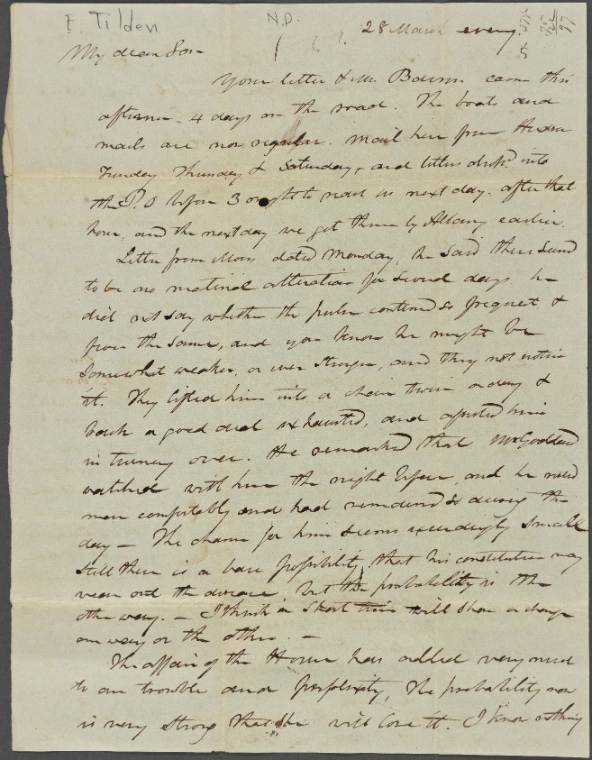 E. Tilden N.D.
28 March eveng.
My dear Son
Your letter & Mr Bowers came this
afternn. 4 days on the road. The boats and
mails are now regular. mail here from Hudson
Tuesday Thursday & Saturday, and letters dropd into
the P.O before 3 ought to reach us next day. after that
hour, and the next day we get them by Albany earlier.
Letter from dated Monday, he said there seemd
to be no material alteration for several days. he
did not say whether the pulse continued so frequent &
from the same, and you know he might be
somewhat weaker, or even stronger, and they not notice
it. They lifted him into a chair twice a day &
back a good deal exhausted, and assisted him
in turning over. He remarked that Mr Goddard
watched with him the night before, and he rested
more comfortably and had remained so during the
day — The chance for him seems exceedingly small
still there is a bare possibility that his constitution may
wear out the disease, but the probability is the
other way. — I think a short time will show a change
one way or the other. —
The affair of the House has added very much
to our trouble and perplexity, the probability now
is very strong that she will lose it. I know nothing